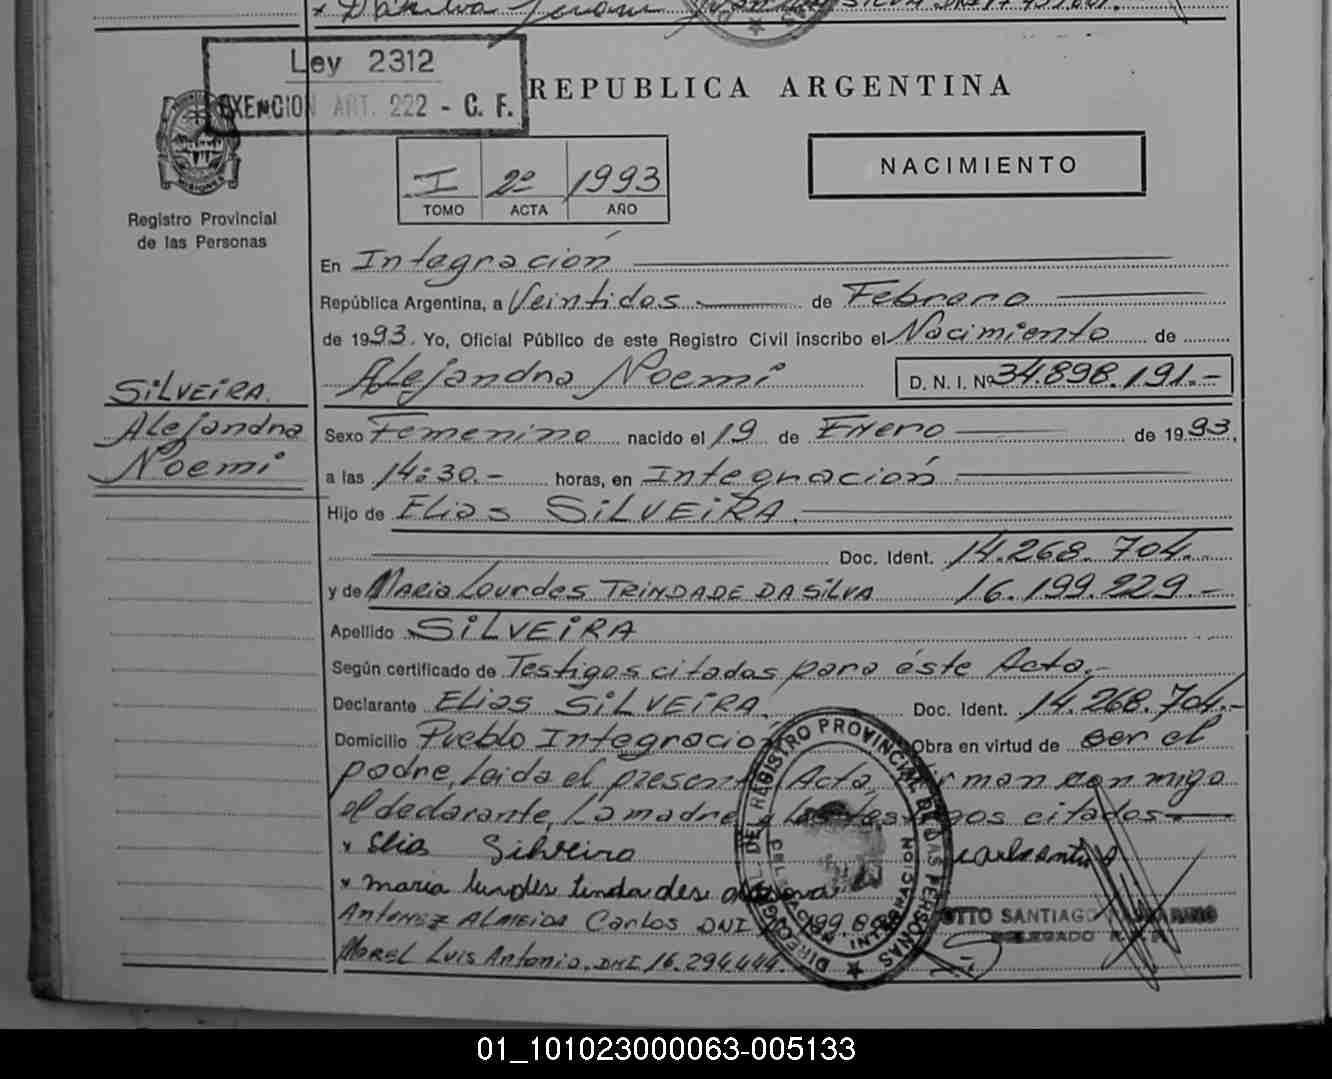 Ley 2312
EXENCION ART. 222 - C. F.
REPUBLICA ARGENTINA
NACIMIENTO
I 2º 1993
TOMO ACTA AÑO
MISIONES
Registro Provincial
de las Personas
SILVEIRA.
Alejandra
Noemi
En Integración
República Argentina, a Veintidos de Febrero
de 1993. Yo, Oficial Público de este Registro Civil inscribo el Nacimiento de
Alejandra Noemi D. N. I. Nº 34.898.191.-
Sexo Femenino nacido el 19 de Enero de 1993,
a las 14:30.- horas, en Integración
Hijo de Elias SILVEIRA.
Doc. Ident. 14.268.704.-
y de Maria Lourdes TRINDADE DA SILVA 16.199.229.-
Apellido SILVEIRA
Según certificado de Testigos citados para éste Acta.-
Declarante Elias SILVEIRA. Doc. Ident. 14.268.704.-
Domicilio Pueblo Integración Obra en virtud de ser el
padre, Leida el presente Acta, firman conmigo
el declarante, La madre y los testigos citados
x Elias Silveira
x maria
Antonez ALMEIDA Carlos DNI
MOREL Luis Antonio. DNI 16.294.444.
DIREC. GRAL. DEL REGISTRO PROVINCIAL DE LAS PERSONAS
INTEGRACION
OTTO SANTIAGO
DELEGADO R. P. P.
01_101023000063-005133